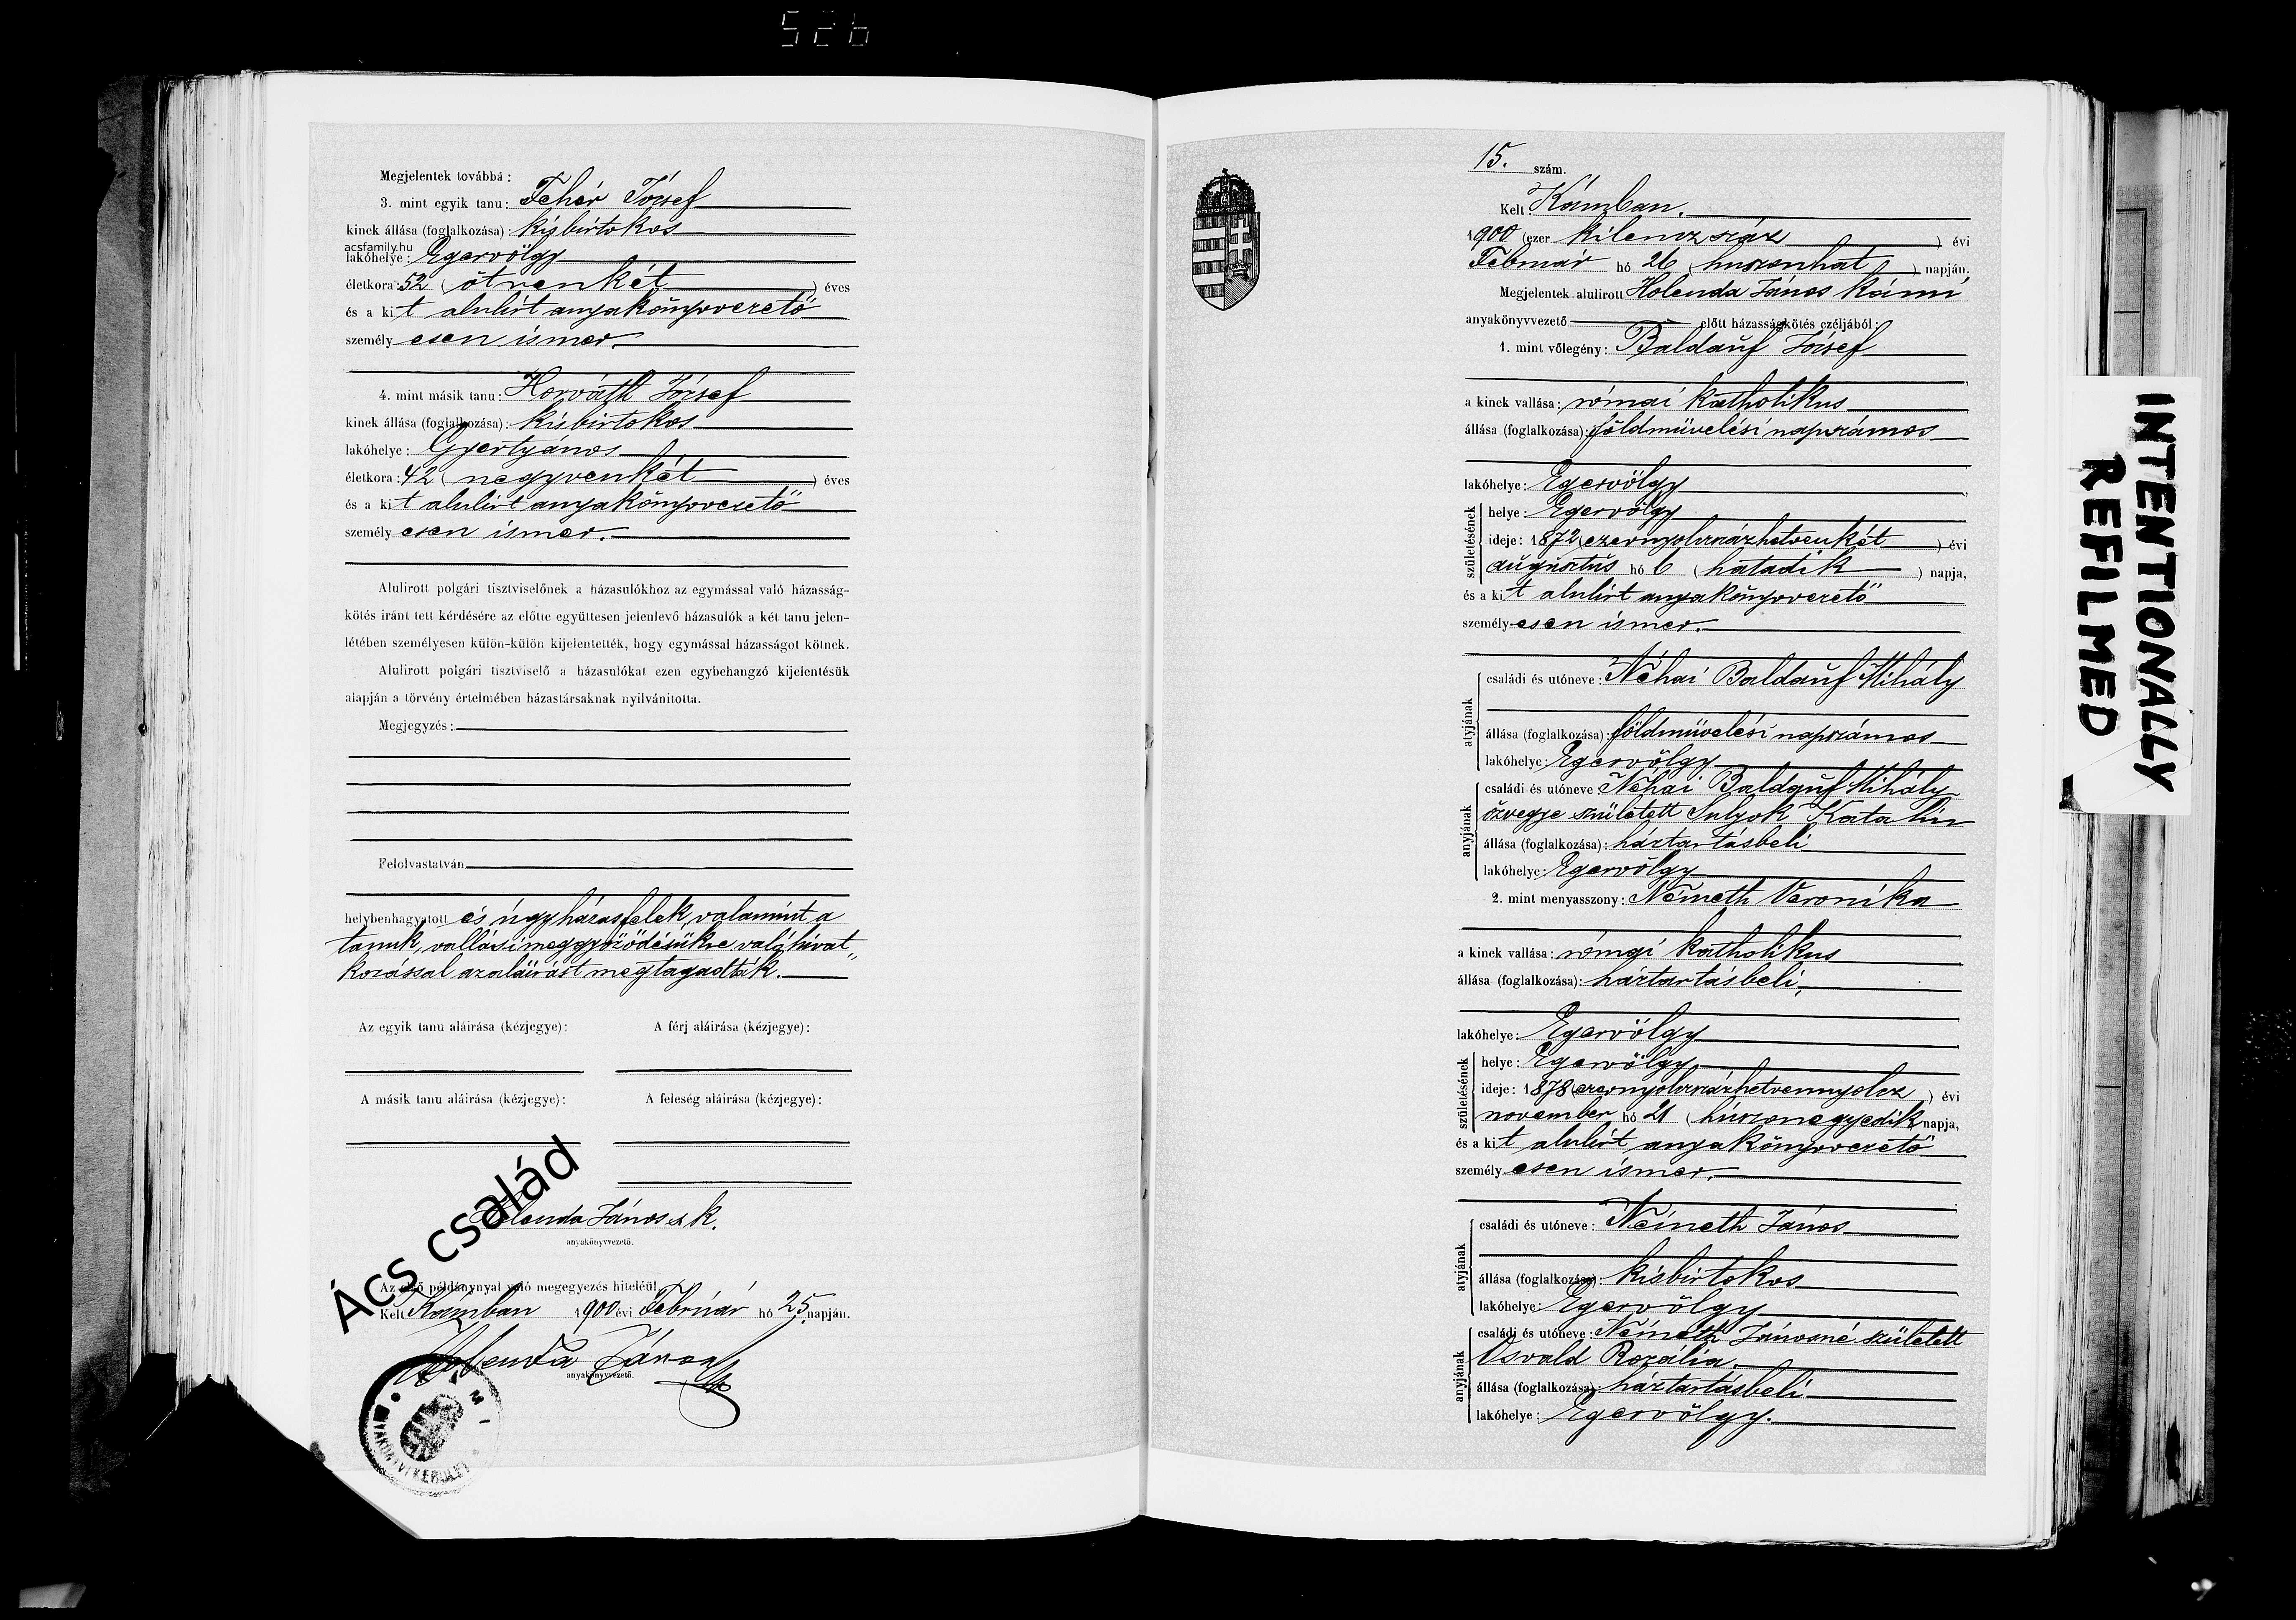 526
Megjelentek továbbá:
3. mint egyik tanu: Fehér József
kinek állása (foglalkozása): kisbirtokos
acsfamily.hu
lakóhelye: Egervölgy
életkora: 52 (ötvenkét) éves
és a kit alulirt anyakönyvvezető
személyesen ismer.
4. mint másik tanu: Horváth József
kinek állása (foglalkozása): kisbirtokos
lakóhelye: Gyertyános
életkora: 42 (negyvenkét) éves
és a kit alulirt anyakönyvvezető
személyesen ismer.
Alulirott polgári tisztviselőnek a házasulókhoz az egymással való házasság-
kötés iránt tett kérdésére az előtte együttesen jelenlevő házasulók a két tanu jelen-
létében személyesen külön-külön kijelentették, hogy egymással házasságot kötnek.
Alulirott polgári tisztviselő a házasulókat ezen egybehangzó kijelentésük
alapján a törvény értelmében házastársaknak nyilvánitotta.
Megjegyzés:
Felolvastatván
helybenhagyatott és úgy házasfelek, valamint a
tanuk, vallási meggyőződésükre való hivat„
kozással azaláirást megtagadták.
Az egyik tanu aláirása (kézjegye): A férj aláirása (kézjegye):
A másik tanu aláirása (kézjegye): A feleség aláirása (kézjegye):
Ács család
Holenda János s.k.
anyakönyvvezető.
Az első példánynyal való megegyezés hiteléül
Kelt Kámban 1900 évi Február hó 25 napján.
Holenda János
anyakönyvvezető.
15. szám.
Kelt: Kámban.
1900 (ezer kilenczszáz) évi
Február hó 26 (huszonhat) napján.
Megjelentek alulirott Holenda János kámi
anyakönyvvezető előtt házasságkötés czéljából:
1. mint vőlegény: Baldauf József
a kinek vallása: római katholikus
állása (foglalkozása): földművelési napszámos
lakóhelye: Egervölgy
születésének
helye: Egervölgy
ideje: 1872 (ezernyolczszázhetvenkét) évi
augusztus hó 6 (hatadik) napja,
és a kit alulirt anyakönyvvezető
személyesen ismer.
atyjának
családi és utóneve: Néhai Baldauf Mihály
állása (foglalkozása): földművelési napszámos
lakóhelye: Egervölgy
anyjának
családi és utóneve: Néhai Baldauf Mihály
özvegye született Sulyok Katalin
állása (foglalkozása): háztartásbeli
lakóhelye: Egervölgy
2. mint menyasszony: Németh Veronika
a kinek vallása: római katholikus
állása (foglalkozása): háztartásbeli,
lakóhelye: Egervölgy
születésének
helye: Egervölgy
ideje: 1878 (ezernyolczszázhetvennyolcz) évi
november hó 21 (húszonegyedik) napja,
és a kit alulirt anyakönyvvezető
személyesen ismer.
atyjának
családi és utóneve: Németh János
állása (foglalkozása): kisbirtokos
lakóhelye: Egervölgy
anyjának
családi és utóneve: Németh Jánosné született
Osvald Rozália.
állása (foglalkozása): háztartásbeli
lakóhelye: Egervölgy.
INTENTIONALLY
REFILMED